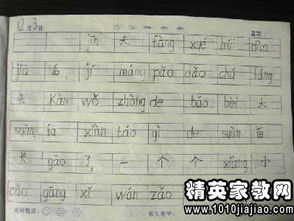 12月3日
今天 fàng xué huí dào
jiā 后, jí máng pǎo dào chú fáng
去 kàn wǒ zhòng de bǎo bèi 大
suàn fa xiàn tái qǐ de suàn 苗
长 gāo 了, 一个个 xiàng 小
cǎo gāng xǐ wán zǎo
精英家教网
www.1010jiajiao.com